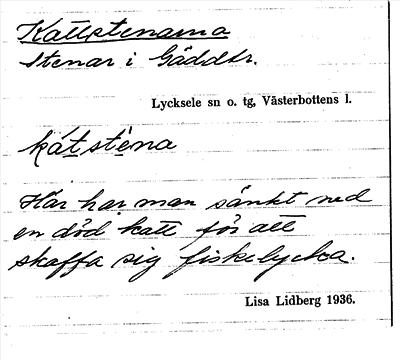 Kattstenarna
Stenar i Gäddtr.
Lycksele sn o. tg, Västerbottens l.
kátstèna
Här har man sänkt ned
en död katt för att
skaffa sig fiskelycka.
Lisa Lidberg 1936.